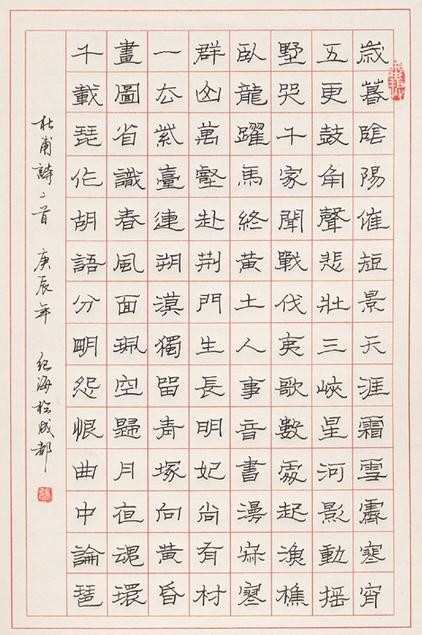 歲暮陰陽催短景天涯霜雪霽寒宵
五更鼓角聲悲壯三峽星河影動搖
野哭千家聞戰伐夷歌數處起漁樵
臥龍躍馬終黃土人事音書漫寂寥
群山萬壑赴荊門生長明妃尚有村
一去紫臺連朔漠獨留青塚向黃昏
畫圖省識春風面珮空歸月夜魂環
千載琵作胡語分明怨恨曲中論琶
杜甫詩二首 庚辰年 紀海於成都